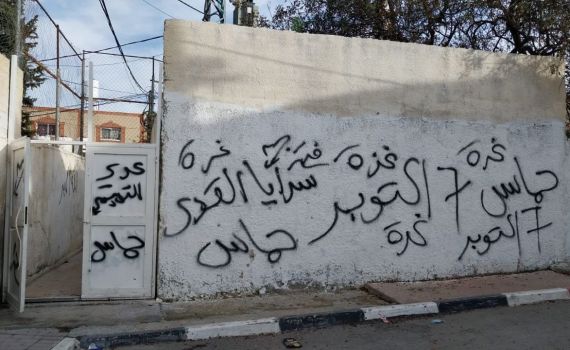 غزة
حماس
7 اكتوبر
غزة
7 اكتوبر
غزة
فتح
سرايا القدس
غزة
حماس
عدي
التميمي
حماس